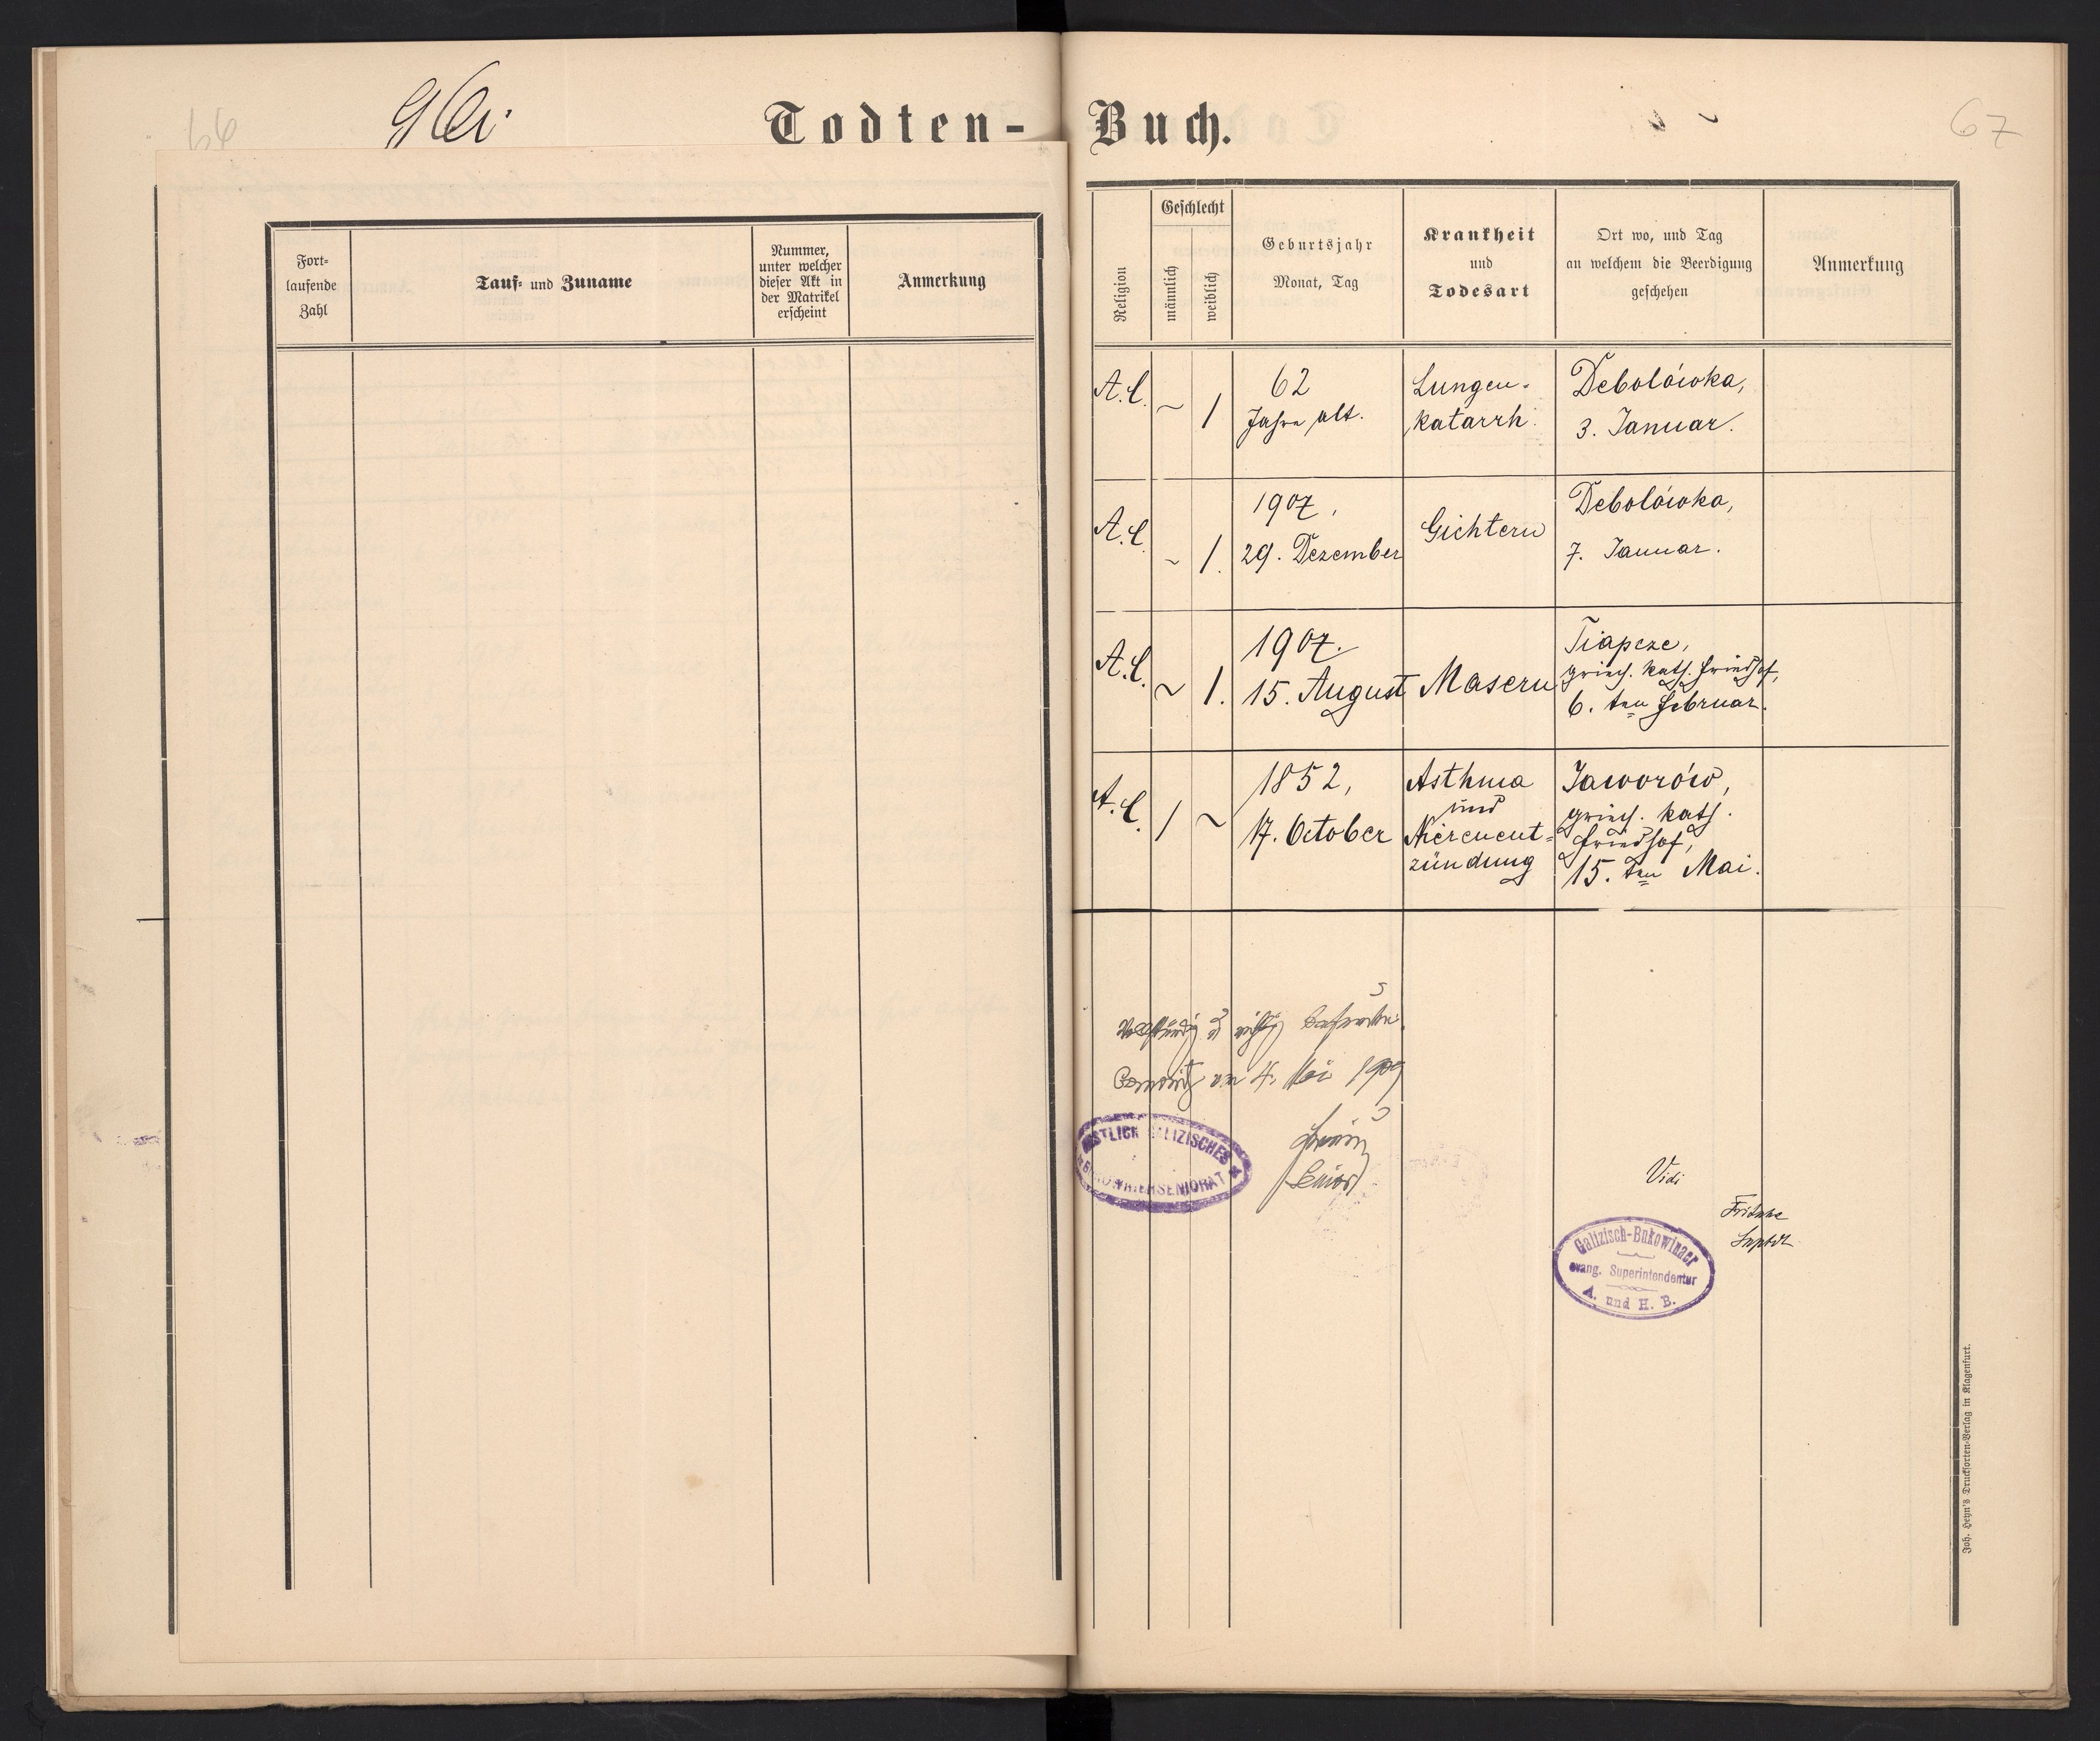 66
Todten-
Fort-
laufende
Zahl
Tauf- und Zuname
Nummer,
unter welcher
dieser Akt in
der Matrikel
erscheint
Anmerkung
Buch.
67
Religion
Geschlecht
männlich
weiblich
Geburtsjahr
Monat, Tag
Krankheit
und
Todesart
Ort wo, und Tag
an welchem die Beerdigung
geschehen
Anmerkung
A.C.
~
1
62
Jahre alt.
Lungen-
katarrh.
Debolówka,
3. Januar.
A.C.
~
1.
1907.
29. Dezember
Gichtern
Debolówka,
7. Januar.
A.C.
~
1.
1907.
15. August
Masern
Tiapcze,
griech. kath. Friedhof,
6. ten Februar.
A.C.
1
~
1852,
17. October
Asthma
und
Nierenent-
zündung
Jaworów,
griech. kath.
Friedhof,
15. ten Mai.
Vollständig u richtig befunden.
am 4. Mai 1909
Senior
ÖSTLICH GALIZISCHES
BUKOWINER SENIORAT
Vidi
Fritsche
Suptdt
Galizisch-Bukowinaer
evang. Superintendentur
A. und H. B.
Joh. Heyn's Drucksorten-Verlag in Klagenfurt.